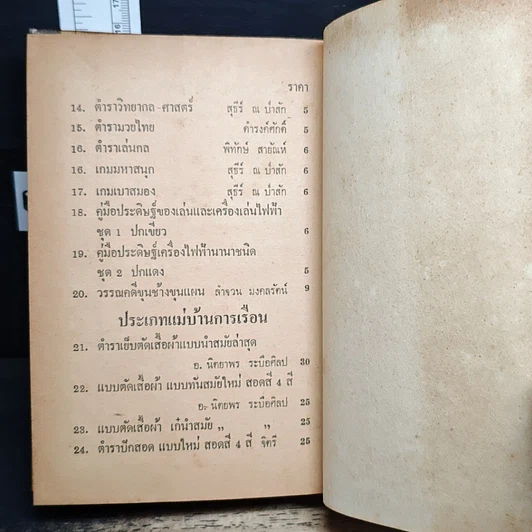 ราคา
14. ตำราวิทยากล-ศาสตร์ สุธีร์ ณ ป่าสัก 5
15. ตำรามวยไทย ดำรงค์ศักดิ์ 5
16. ตำราเล่นกล พิทักษ์ สายัณห์ 6
16. เกมมหาสนุก สุธีร์ ณ ป่าสัก 6
17. เกมเบาสมอง สุธีร์ ณ ป่าสัก 6
18. คู่มือประดิษฐ์ของเล่นและเครื่องเล่นไฟฟ้า
ชุด 1 ปกเขียว 6
19. คู่มือประดิษฐ์เครื่องไฟฟ้านานาชนิด
ชุด 2 ปกแดง 5
20. วรรณคดีขุนช้างขุนแผน ลำจวน มงคลรัตน์ 9
ประเภทแม่บ้านการเรือน
21. ตำราเย็บตัดเสื้อผ้าแบบนำสมัยล่าสุด
อ. นิตยาพร ระบือศิลป 30
22. แบบตัดเสื้อผ้า แบบทันสมัยใหม่ สอดสี 4 สี
อ. นิตยพร ระบือศิลป 25
23. แบบตัดเสื้อผ้า เก๋นำสมัย ,, ,, 25
24. ตำราปักสอด แบบใหม่ สอดสี 4 สี จิตรี 25